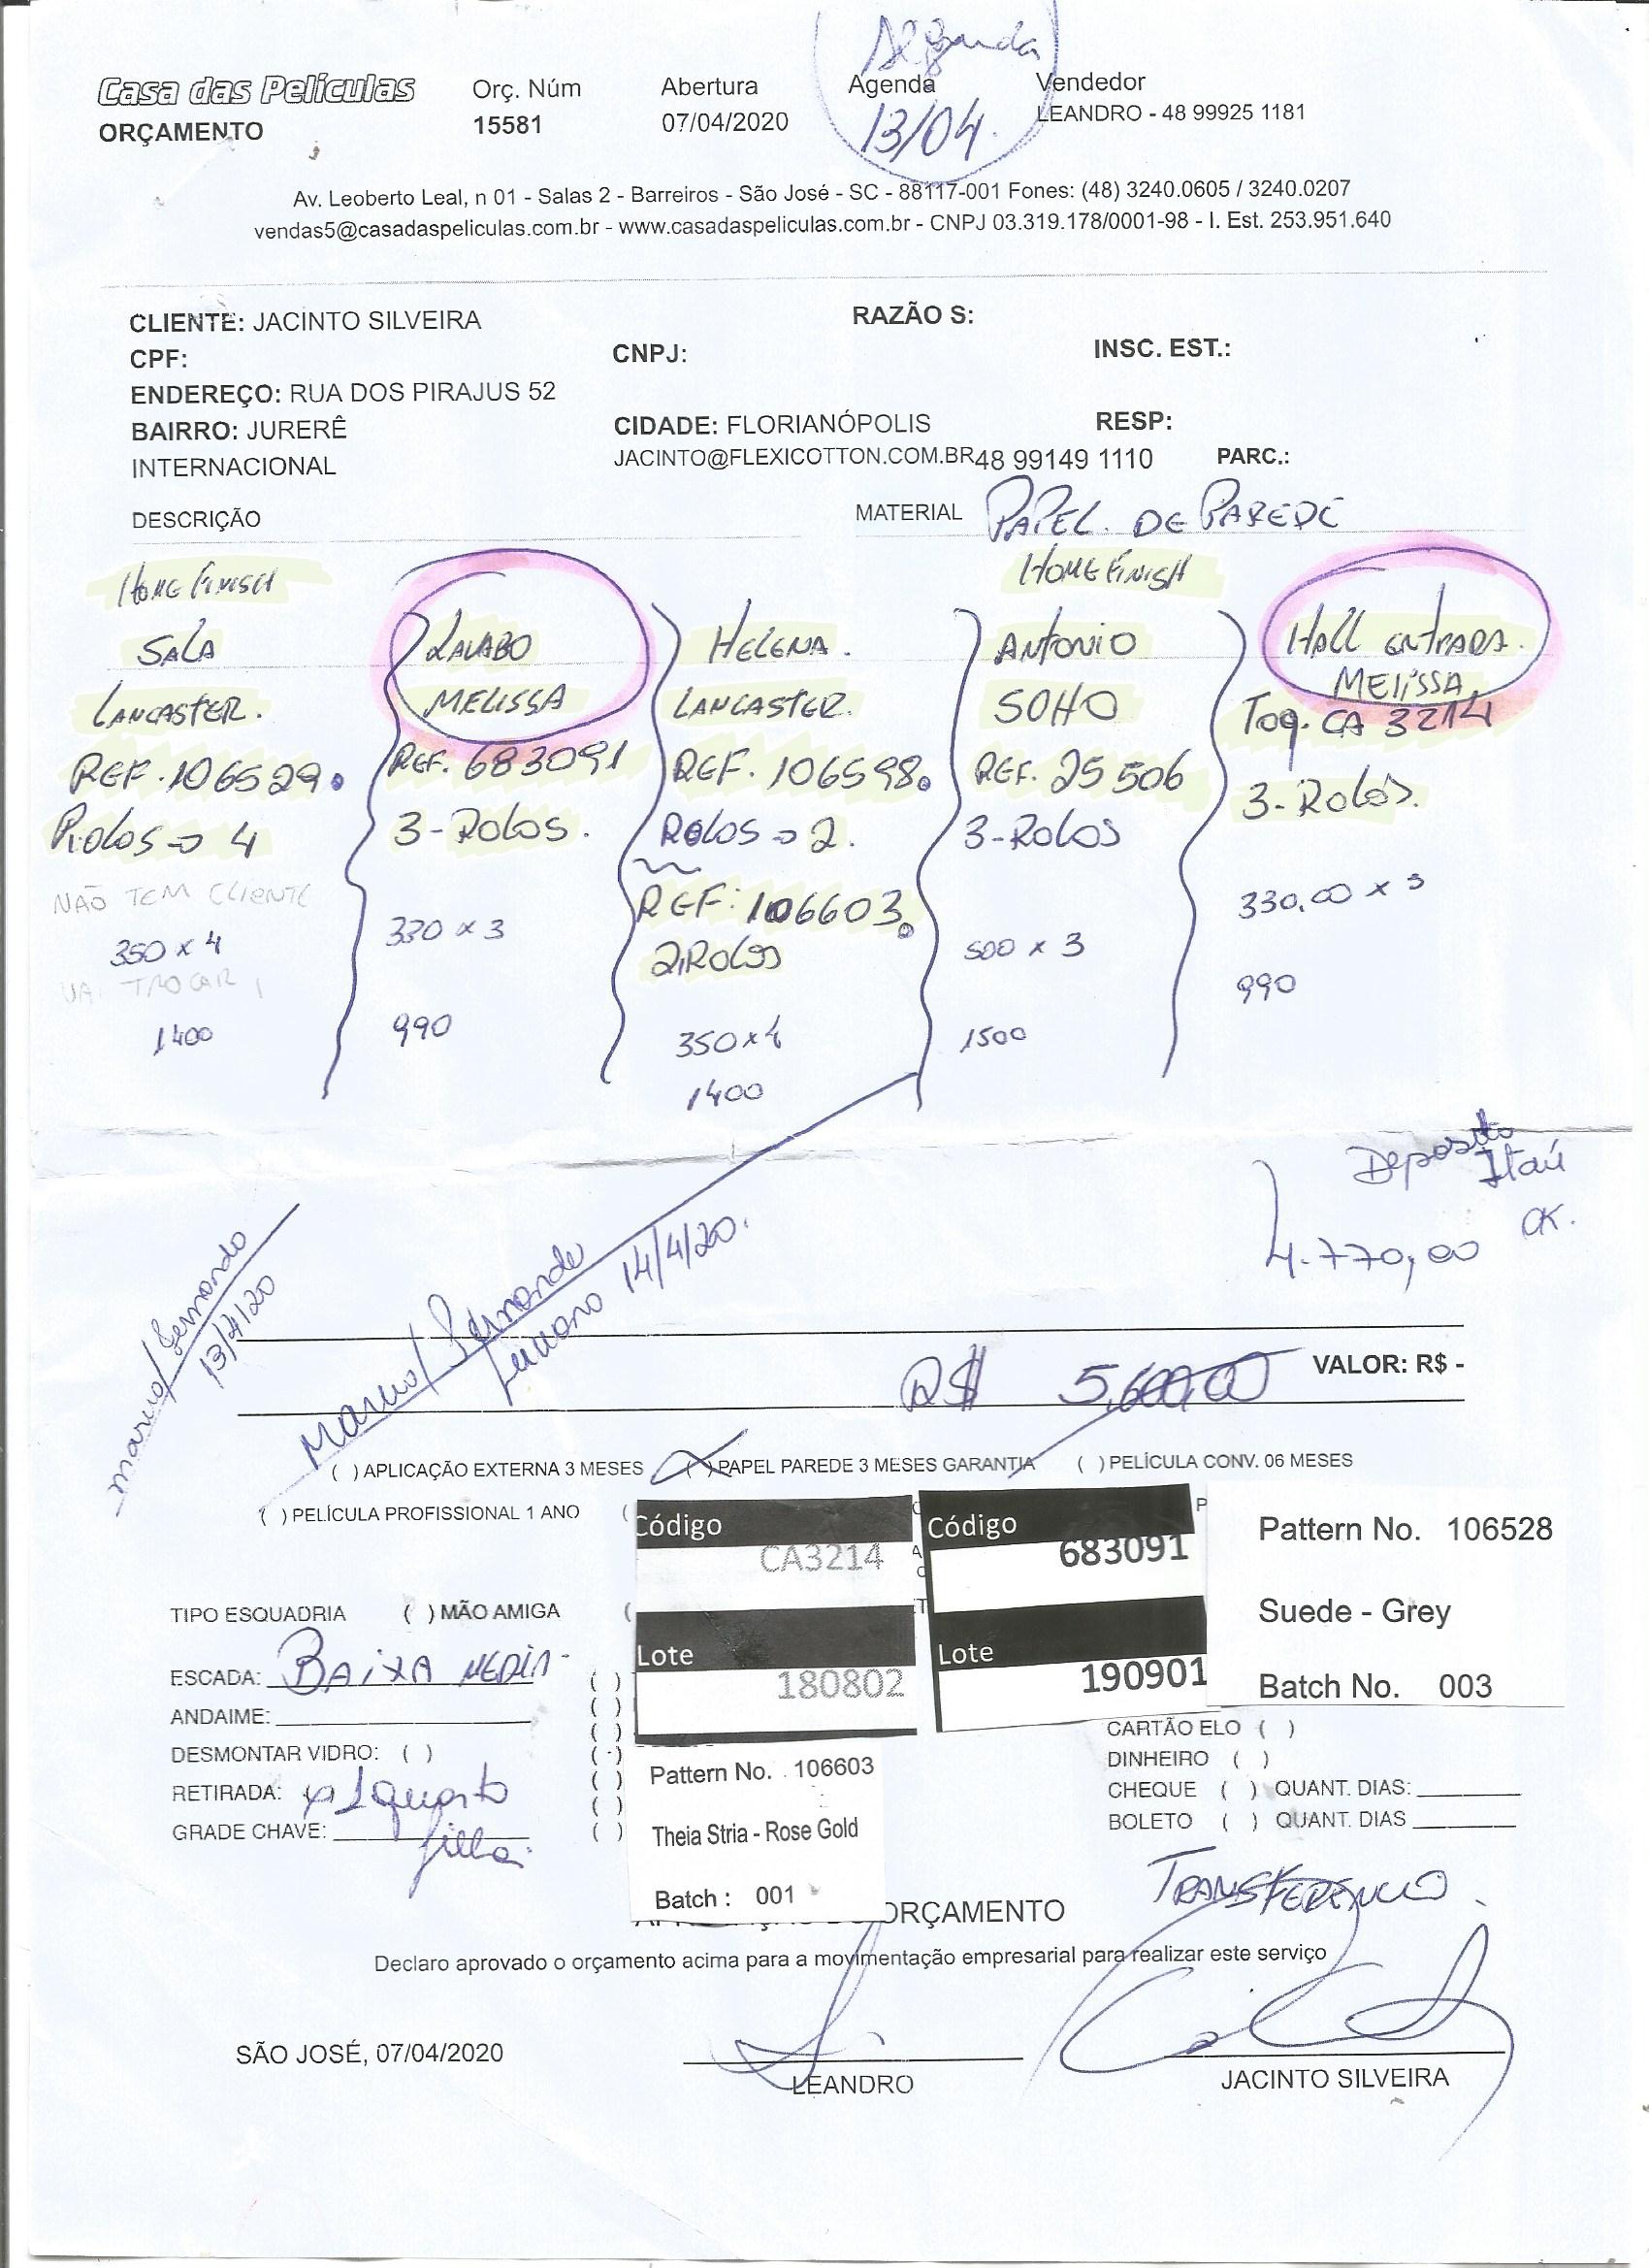 Segunda
Casa das Películas
ORÇAMENTO
Orç. Núm
15581
Abertura
07/04/2020
Agenda
13/04.
Vendedor
LEANDRO - 48 99925 1181
Av. Leoberto Leal, n 01 - Salas 2 - Barreiros - São José - SC - 88117-001 Fones: (48) 3240.0605 / 3240.0207
vendas5@casadaspeliculas.com.br - www.casadaspeliculas.com.br - CNPJ 03.319.178/0001-98 - I. Est. 253.951.640
CLIENTE: JACINTO SILVEIRA
RAZÃO S:
CPF:
CNPJ:
INSC. EST.:
ENDEREÇO: RUA DOS PIRAJUS 52
BAIRRO: JURERÊ
INTERNACIONAL
CIDADE: FLORIANÓPOLIS
RESP:
JACINTO@FLEXICOTTON.COM.BR 48 99149 1110
PARC.:
DESCRIÇÃO
MATERIAL PAPEL. DE PAREDE
HOME FINISH
SALA
LANCASTER.
REF. 106529.
ROLOS => 4
NÃO TEM CLIENTE
350 x 4
VAI TROCAR
1400
LAVABO
MELISSA
REF. 683091
3-ROLOS.
330 x 3
990
HELENA.
LANCASTER.
REF. 106598.
ROLOS => 2.
REF: 106603.
2 ROLOS
350 x 4
1400
HOME FINISH
ANTONIO
SOHO
REF. 25506
3-ROLOS
500 x 3
1500
HALL ENTRADA.
MELISSA
Toq. CA 3214
3-ROLOS.
330,00 x 3
990
Deposito
Itaú
OK.
4.770,00
Marcio/Fernando
13/4/20
Marcio/Fernando
Luciano 14/4/20.
R$ 5.600,00
VALOR: R$ -
( ) APLICAÇÃO EXTERNA 3 MESES
( ) PAPEL PAREDE 3 MESES GARANTIA
( ) PELÍCULA CONV. 06 MESES
( ) PELÍCULA PROFISSIONAL 1 ANO
Código
CA3214
Lote
180802
Código
683091
Lote
190901
Pattern No. 106528
Suede - Grey
Batch No. 003
TIPO ESQUADRIA
( ) MÃO AMIGA
ESCADA: BAIXA MEDIA-
ANDAIME:
DESMONTAR VIDRO: ( )
RETIRADA: 1 quarto
GRADE CHAVE: filha
Pattern No. 106603
Theia Stria - Rose Gold
Batch : 001
CARTÃO ELO ( )
DINHEIRO ( )
CHEQUE ( ) QUANT. DIAS:
BOLETO ( ) QUANT. DIAS
TRANSFERENCIA.
ORÇAMENTO
Declaro aprovado o orçamento acima para a movimentação empresarial para realizar este serviço
SÃO JOSÉ, 07/04/2020
LEANDRO
JACINTO SILVEIRA